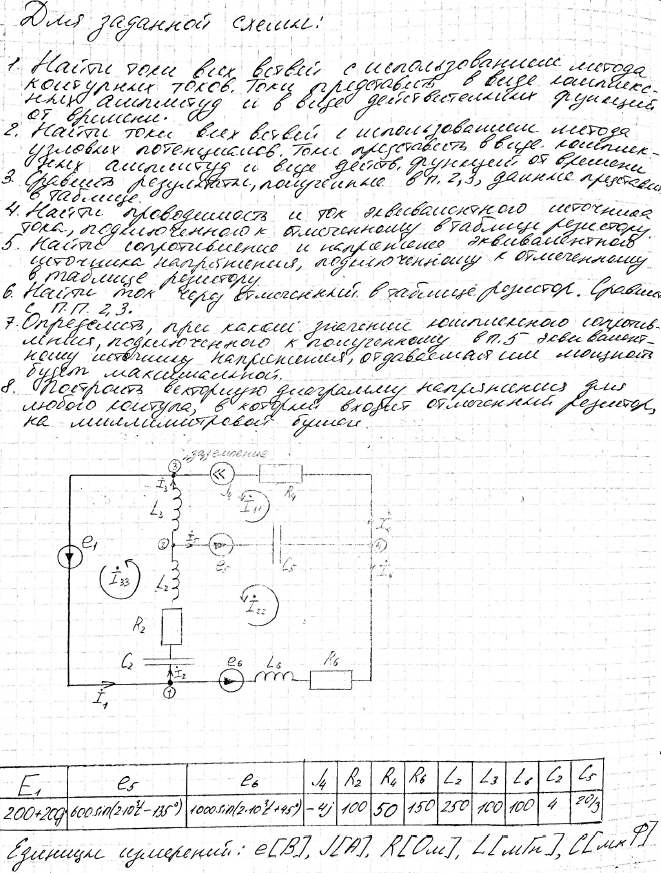 Для заданной схемы:
1. Найти токи всех ветвей с использованием метода
контурных токов. Токи представить в виде комплекс-
ных амплитуд и в виде действительных функций
от времени.
2. Найти токи всех ветвей с использованием метода
узловых потенциалов. Токи представить в виде комплек-
ных амплитуд и виде действ. функций от времени
3. Сравнить результаты, полученные в п. 2,3, данные представить
в таблице.
4. Найти проводимость и ток эквивалентного источника
тока, подключенного к отмеченному в таблице резистору.
5. Найти сопротивление и напряжение эквивалентного
источника напряжения, подключенному к отмеченному
в таблице резистору
6. Найти ток через отмеченный в таблице резистор. Сравнить
с п.п. 2,3.
7. Определить, при каком значении комплексного сопротив-
ления, подключенного к полученному в п.5 эквивалент-
ному источнику напряжения, отдаваемая им мощность
будет максимальной.
8. Построить векторную диаграмму напряжения для
любого контура, в который входит отмеченный резистор,
на миллиметровой бумаге.
заземление
3
İ3 J4 R4
L3 İ11
e1 2 İ5 e5 C5 4 İ4
İ33 L2 İ22 İ6
R2
C2 İ2 e6 L6 R6
İ1 1
E1 e5 e6 J4 R2 R4 R6 L2 L3 L6 C2 C5
200+200j 600sin(2·10³t-135°) 1000sin(2·10³t+45°) -4j 100 50 150 250 100 100 4 20/3
Единицы измерений: e[В], J[А], R[Ом], L[мГн], C[мкФ]